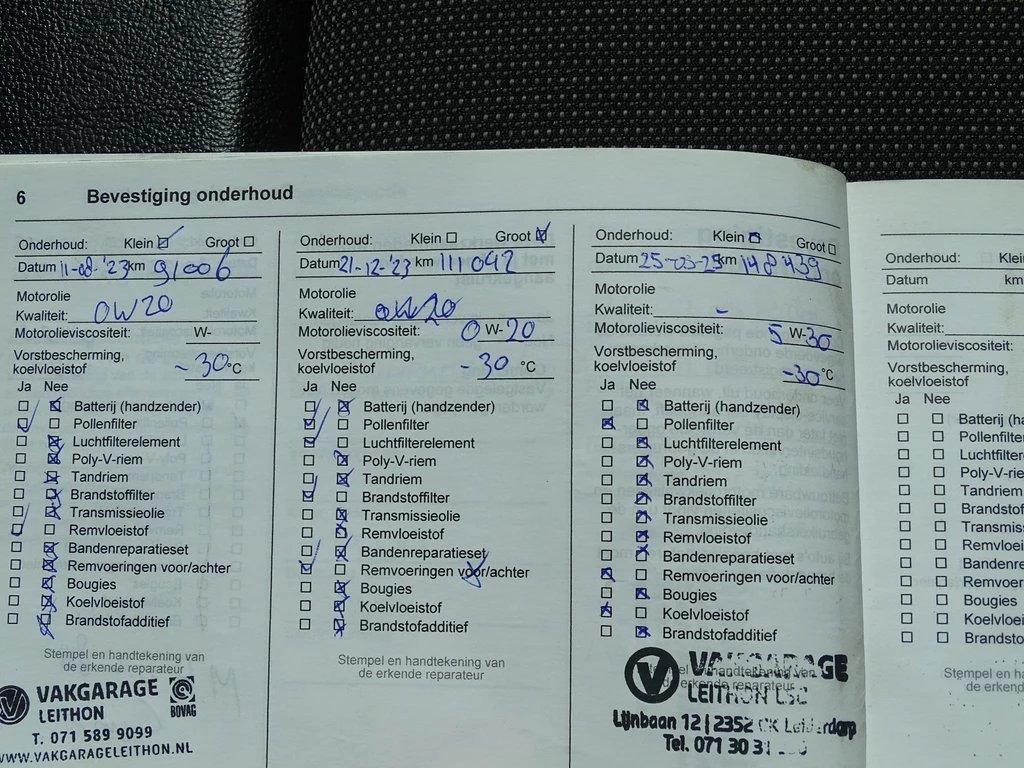 6 Bevestiging onderhoud
Onderhoud: Klein Groot
Datum 11-08-'23 km 91006
Motorolie
Kwaliteit: 0W20
Motorolieviscositeit: W-
Vorstbescherming,
koelvloeistof -30 °C
Ja Nee
Batterij (handzender)
Pollenfilter
Luchtfilterelement
Poly-V-riem
Tandriem
Brandstoffilter
Transmissieolie
Remvloeistof
Bandenreparatieset
Remvoeringen voor/achter
Bougies
Koelvloeistof
Brandstofadditief
Stempel en handtekening van
de erkende reparateur
VAKGARAGE
LEITHON
BOVAG
T. 071 589 9099
WWW.VAKGARAGELEITHON.NL
Onderhoud: Klein Groot
Datum 21-12-'23 km 111042
Motorolie
Kwaliteit: 0W20
Motorolieviscositeit: 0 W-20
Vorstbescherming,
koelvloeistof -30 °C
Ja Nee
Batterij (handzender)
Pollenfilter
Luchtfilterelement
Poly-V-riem
Tandriem
Brandstoffilter
Transmissieolie
Remvloeistof
Bandenreparatieset
Remvoeringen voor/achter
Bougies
Koelvloeistof
Brandstofadditief
Stempel en handtekening van
de erkende reparateur
Onderhoud: Klein Groot
Datum 25-03-25 km 148439
Motorolie
Kwaliteit: -
Motorolieviscositeit: 5 W-30
Vorstbescherming,
koelvloeistof -30 °C
Ja Nee
Batterij (handzender)
Pollenfilter
Luchtfilterelement
Poly-V-riem
Tandriem
Brandstoffilter
Transmissieolie
Remvloeistof
Bandenreparatieset
Remvoeringen voor/achter
Bougies
Koelvloeistof
Brandstofadditief
Stempel en handtekening van
de erkende reparateur
VAKGARAGE
LEITHON LSC
Lijnbaan 12 | 2352 CK Leiderdorp
Tel. 071 30 3
Onderhoud: Klein
Datum km
Motorolie
Kwaliteit:
Motorolieviscositeit:
Vorstbescherming,
koelvloeistof
Ja Nee
Batterij (ha
Pollenfilter
Luchtfilter
Poly-V-rie
Tandriem
Brandstof
Transmiss
Remvloei
Bandenre
Remvoer
Bougies
Koelvloei
Brandsto
Stempel en h
de erkend